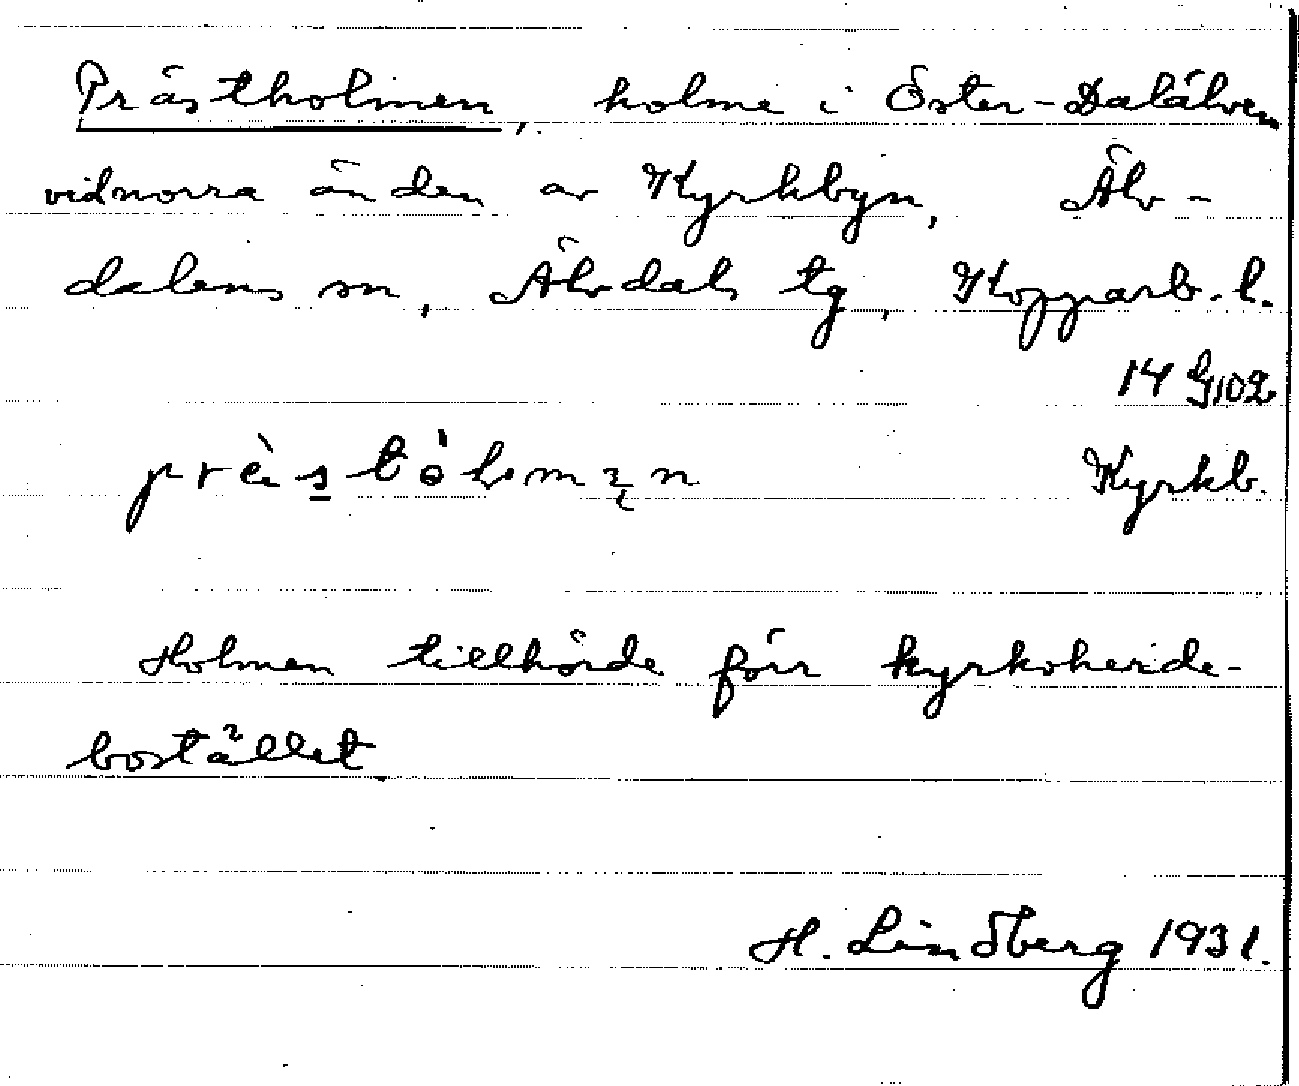 Prästholmen, holme i Öster-Dalälven
vid norra änden av Kyrkbyn, Älv-
dalens sn, Älvdals tg, Kopparb. l.
14 G 102
Kyrkb.
Holmen tillhörde förr kyrkoherde-
bostället
H. Lindberg 1931.